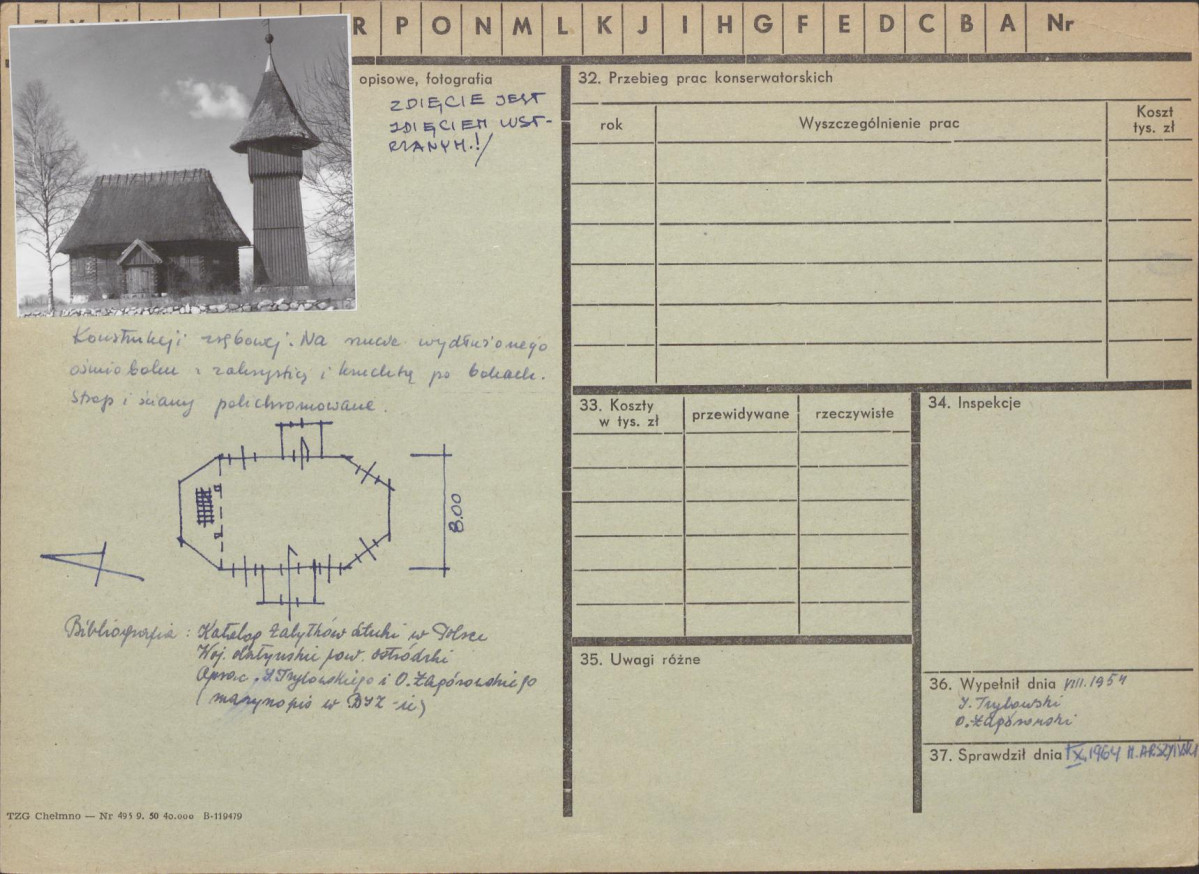 R P O N M L K J I H G F E D C B A Nr
opisowe, fotografia
ZDIĘCIE JEST
ZDIĘCIEM WST-
RZANYM.!
Konstrukcji zrębowej. Na rzucie wydłużonego
ośmioboku z zakrystią i kruchtą po bokach.
Strop i ściany polichromowane.
8.00
Bibliografia: Katalog Zabytków Sztuki w Polsce
Woj. olsztyńskie pow. ostródzki
Oprac. J. Trybowskiego i O. Zagórowskiego
(maszynopis w
TZG Chełmno — Nr 495 9. 50 40.000 B-119479
32. Przebieg prac konserwatorskich
rok
Wyszczególnienie prac
Koszt
tys. zł
33. Koszty
w tys. zł
przewidywane
rzeczywiste
34. Inspekcje
35. Uwagi różne
36. Wypełnił dnia VIII.1954
J. Trybowski
O. Zagórowski
37. Sprawdził dnia IX.1964 M. ARSZYŃSKI